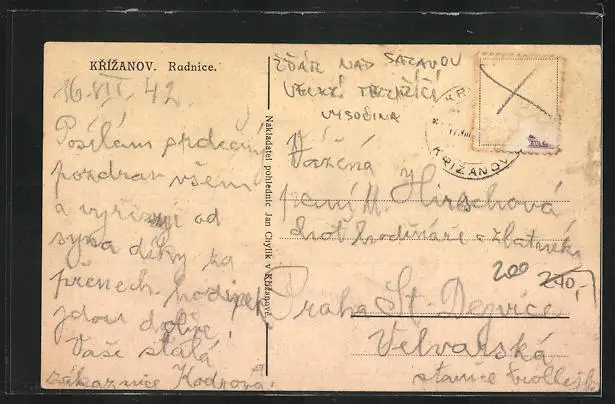 KŘÍŽANOV. Radnice.
16 VII. 42
Posílám srdečný
pozdrav všem
a vyřizuji od
syna díky za
přenech. hodinek
jdou dobře.
Vaše stálá
zákaznice Kodrová.
Nakladatel pohlednic Jan Chylík v Křižanově.
ŽĎÁR NAD SÁZAVOU
VELKÉ MEZIŘÍČÍ
VYSOČINA
KŘIŽANOV
Vážená
paní M. Hirschová
choť hodináře a zlatníka
200 240,-
Praha St. Dejvice
Velvarská
stanice